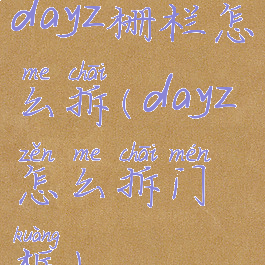 dayz栅栏怎
me chāi
么拆(dayz
zěn me chāi mén
怎么拆门
kuàng
框)